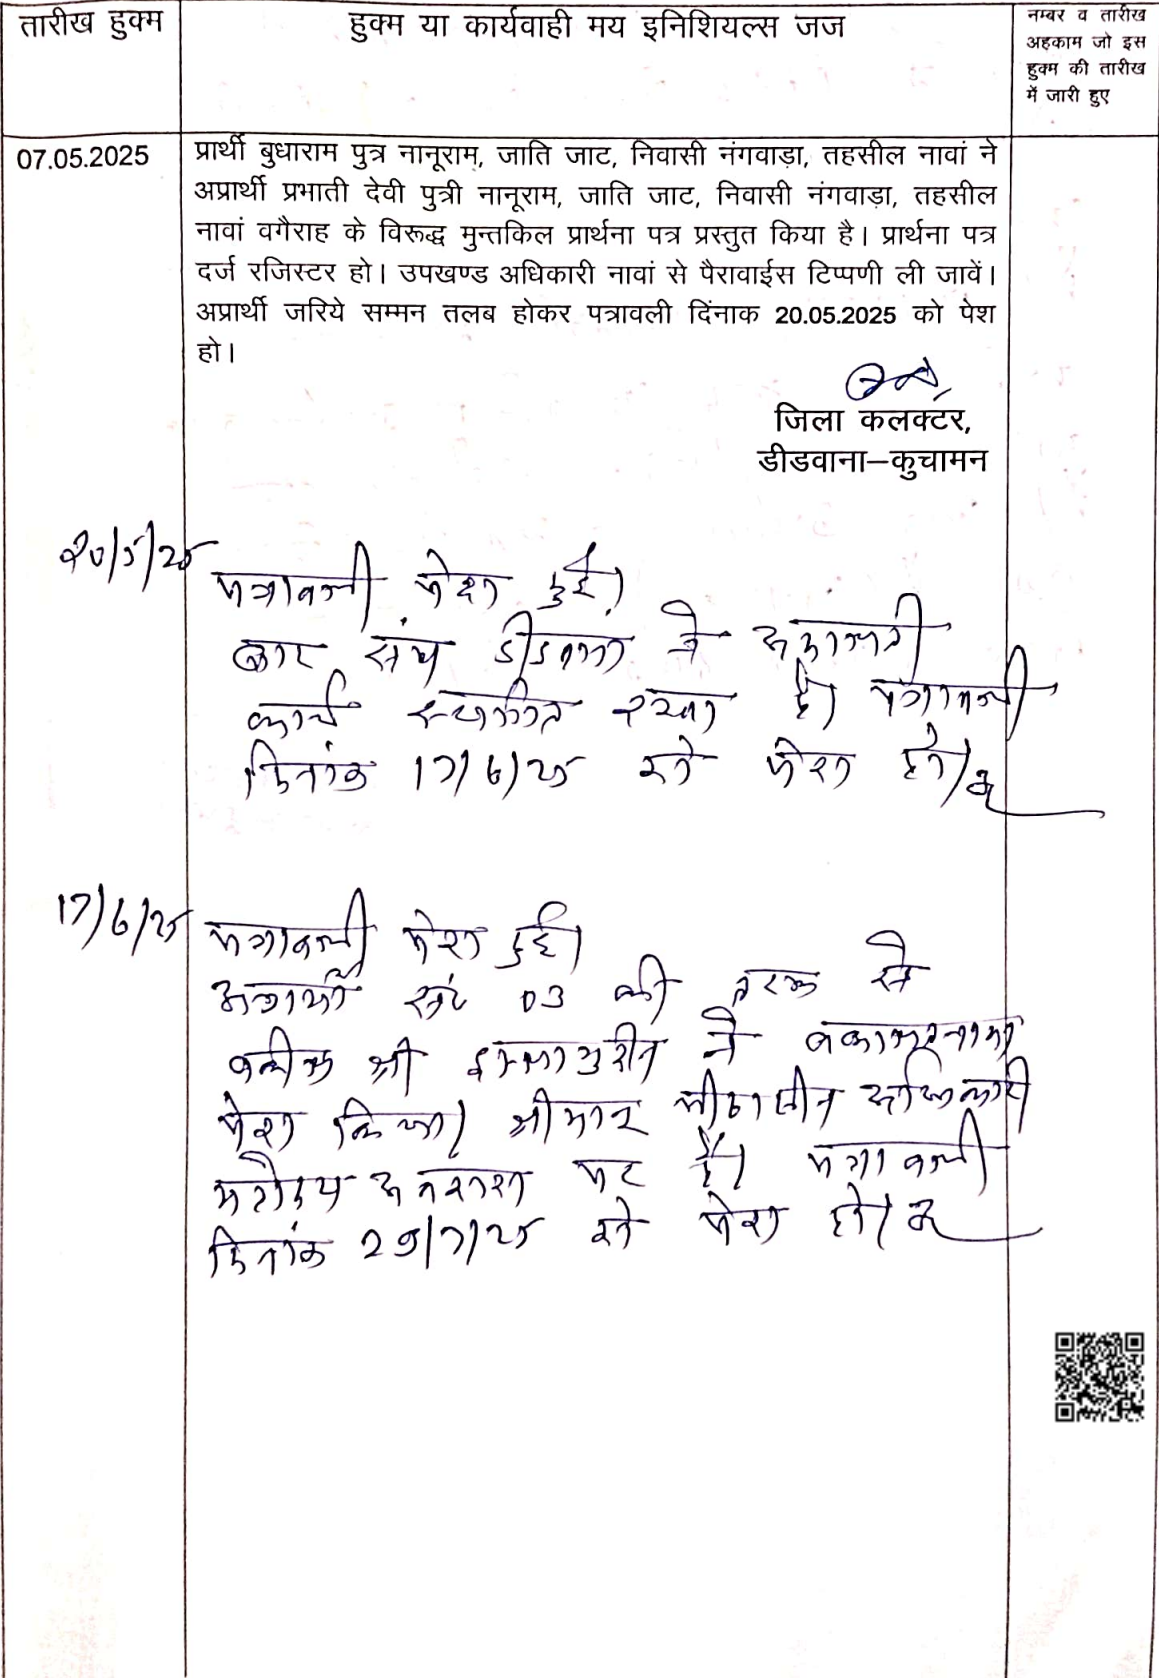 तारीख हुक्म
हुक्म या कार्यवाही मय इनिशियल्स जज
नम्बर व तारीख
अहकाम जो इस
हुक्म की तारीख
में जारी हुए
07.05.2025
प्रार्थी बुधाराम पुत्र नानूराम, जाति जाट, निवासी नंगवाड़ा, तहसील नावां ने
अप्रार्थी प्रभाती देवी पुत्री नानूराम, जाति जाट, निवासी नंगवाड़ा, तहसील
नावां वगैराह के विरूद्ध मुन्तकिल प्रार्थना पत्र प्रस्तुत किया है। प्रार्थना पत्र
दर्ज रजिस्टर हो। उपखण्ड अधिकारी नावां से पैरावाईस टिप्पणी ली जावें।
अप्रार्थी जरिये सम्मन तलब होकर पत्रावली दिंनाक 20.05.2025 को पेश
हो।
जिला कलक्टर,
डीडवाना–कुचामन
20/5/25
पत्रावली पेश हुई।
बार संघ डीडवाना ने अदालती
कार्य स्थगित रखा है। पत्रावली
दिनांक 17/6/25 को पेश हो।
17/6/25
पत्रावली पेश हुई।
अप्रार्थी सं 03 की तरफ से
वकील श्री ने वकालतनामा
पेश किया। श्रीमान पीठासीन अधिकारी
महोदय अवकाश पर है। पत्रावली
दिनांक 29/7/25 को पेश हो।